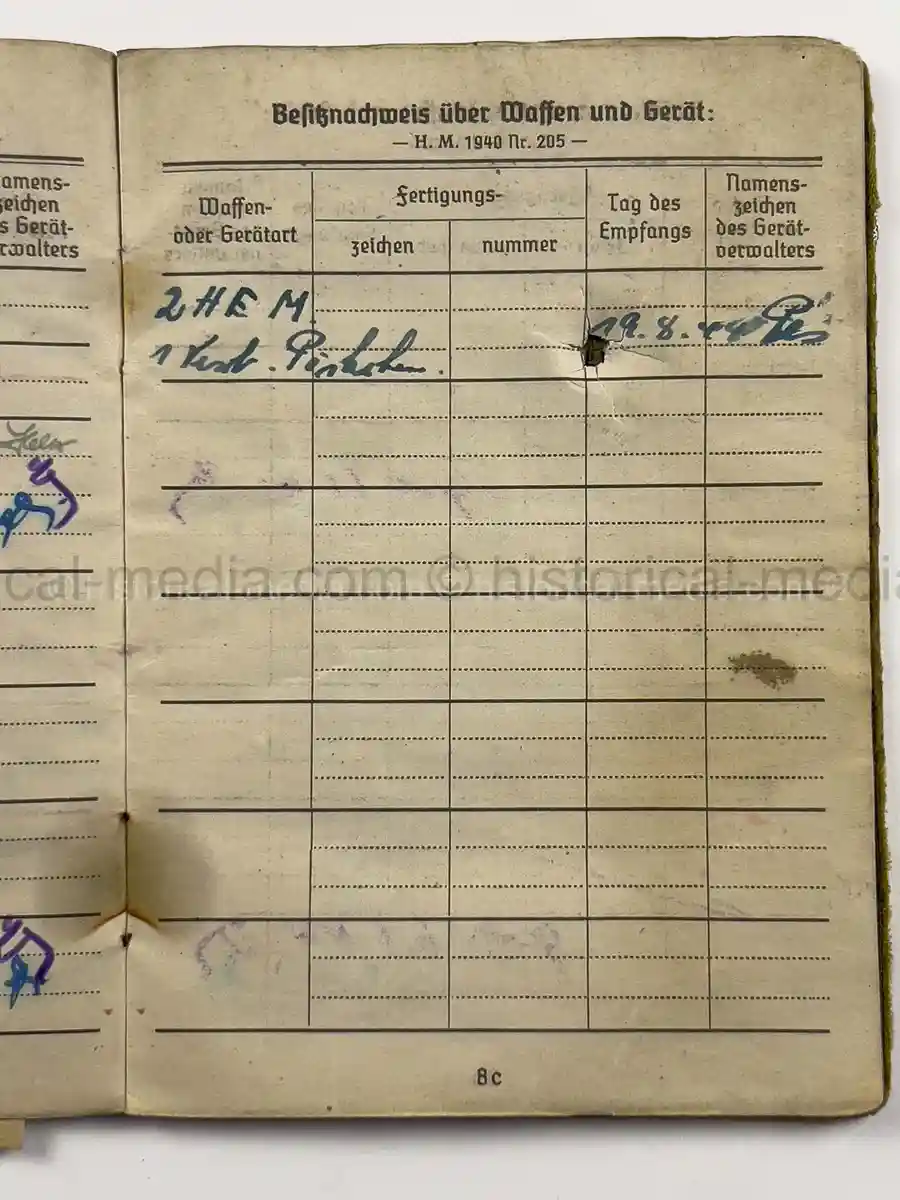 Besitznachweis über Waffen und Gerät:
— H. M. 1940 Nr. 205 —
amens-
zeichen
s Gerät-
rwalters
Waffen-
oder Gerätart
Fertigungs-
zeichen
nummer
Tag des
Empfangs
Namens-
zeichen
des Gerät-
verwalters
2 H E M.
19. 8. 44
1
cal-media.com © historical-media
8c